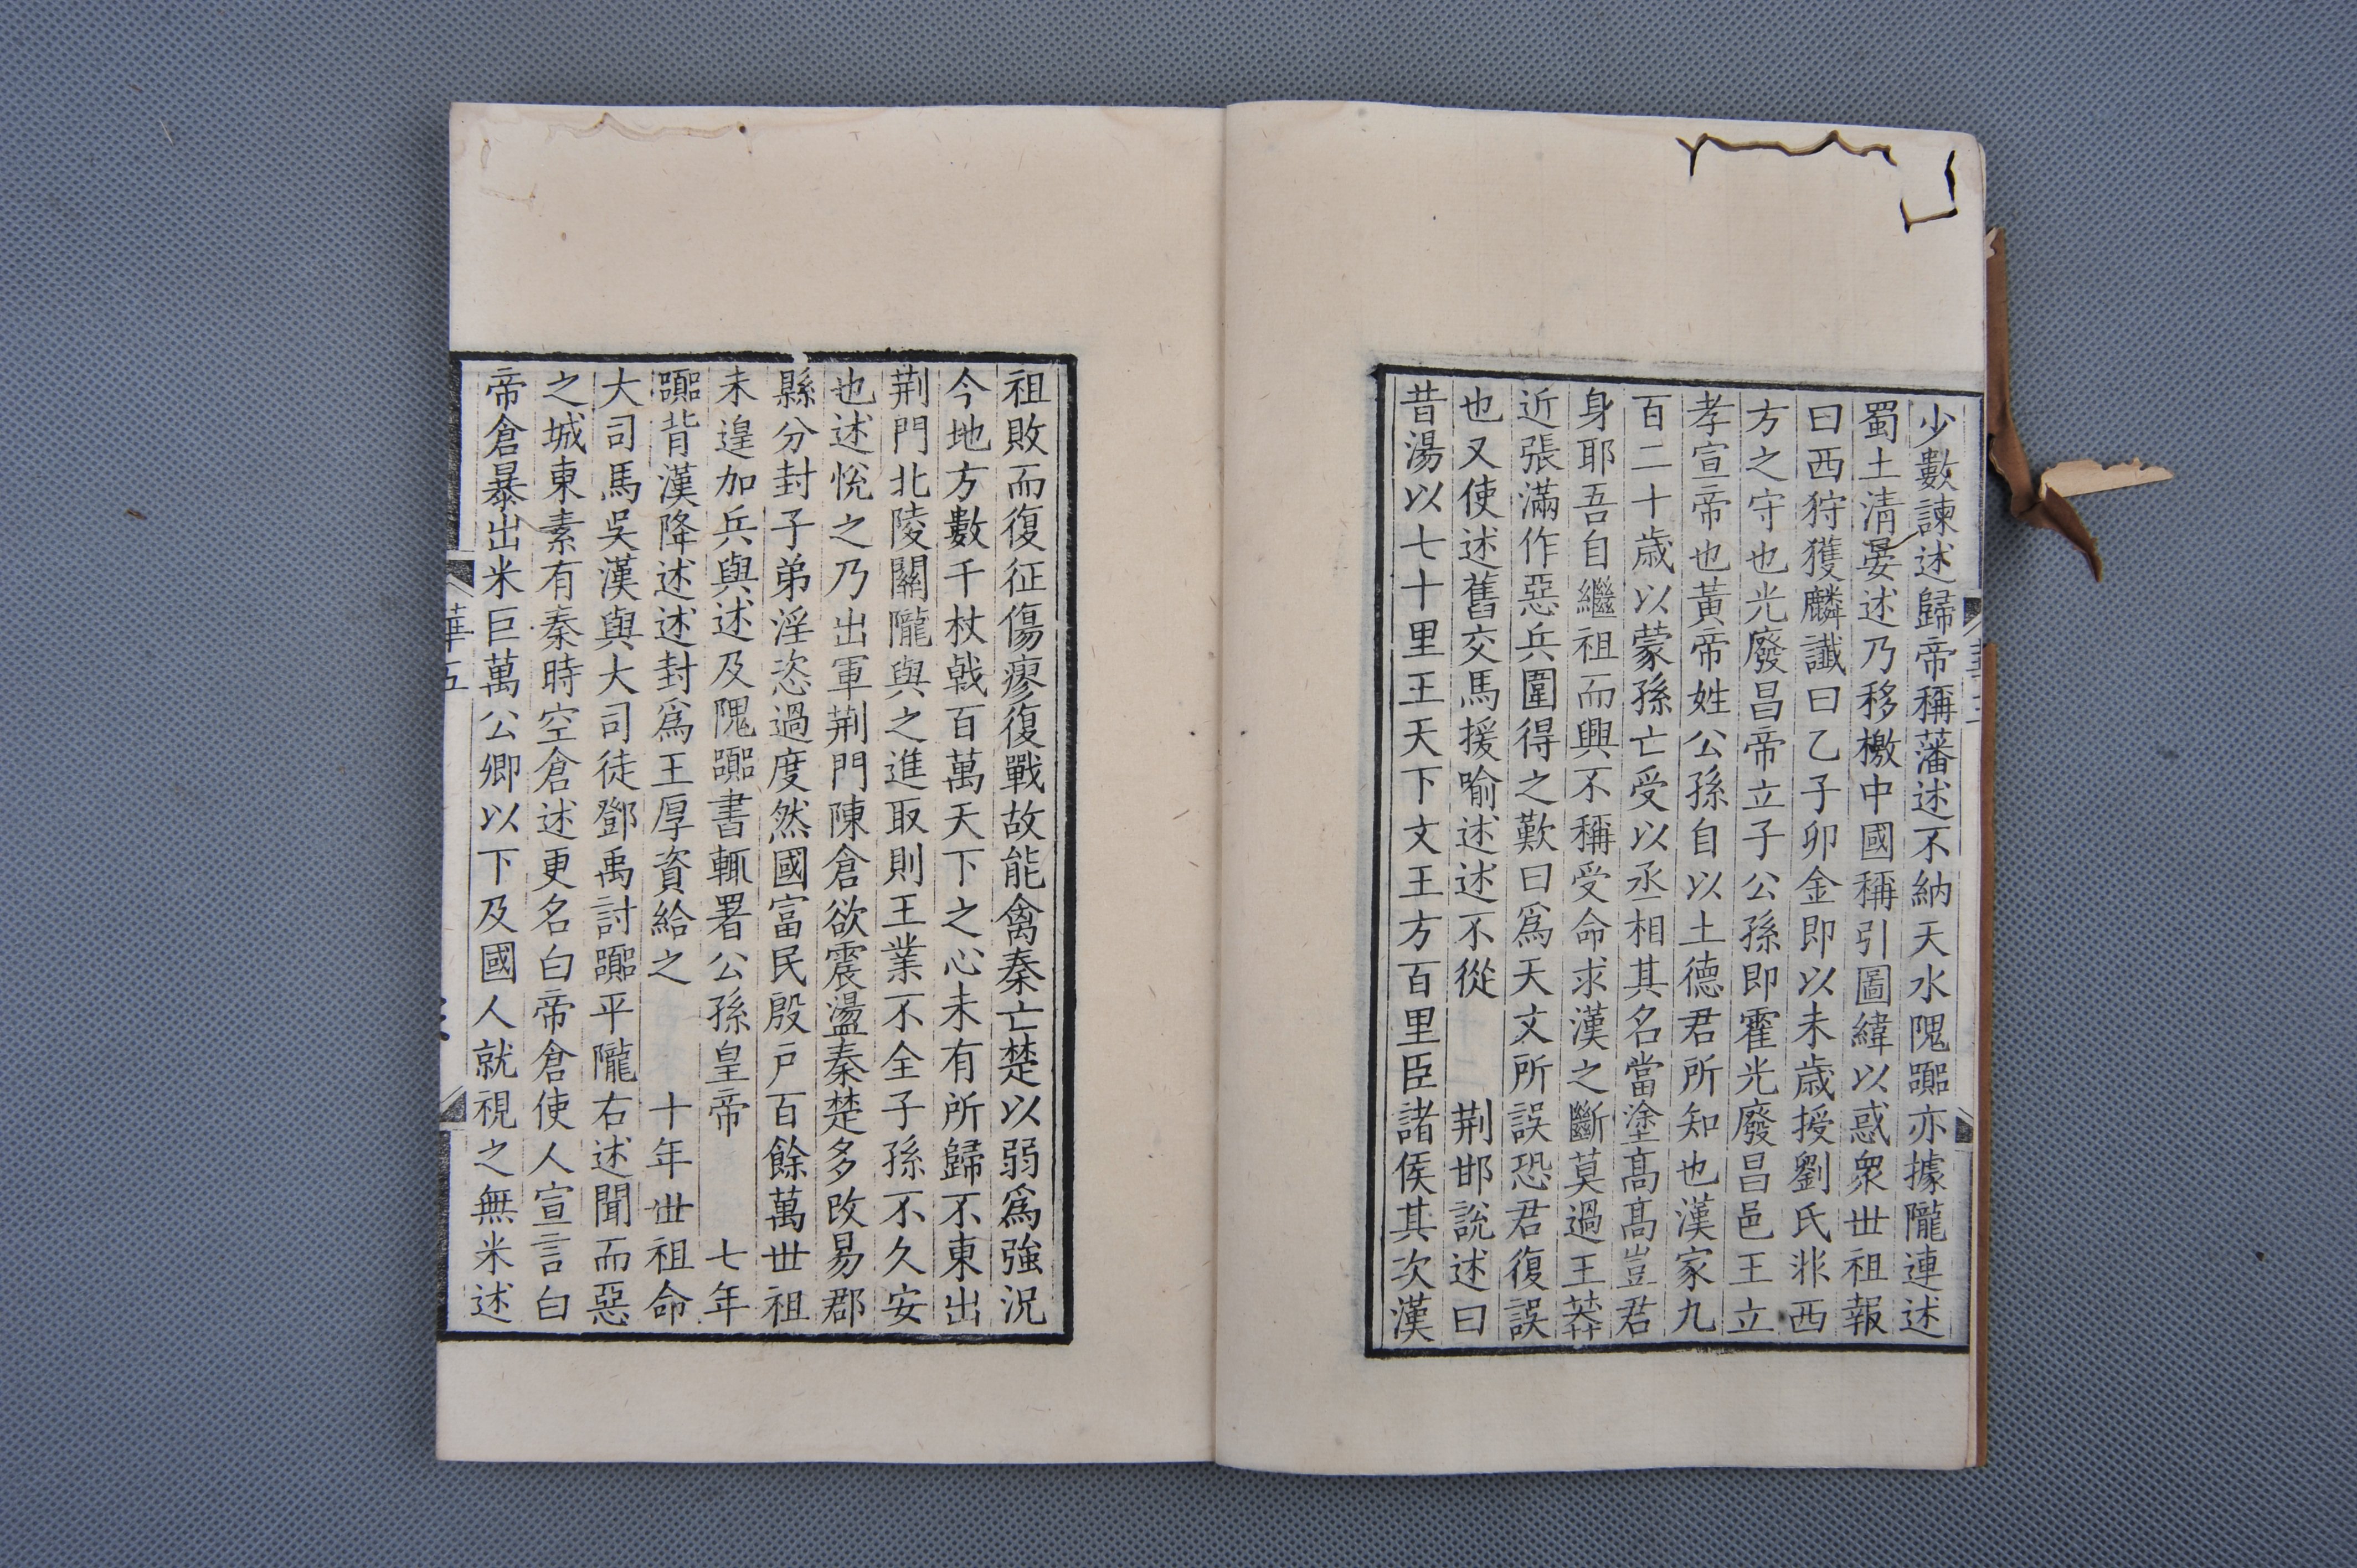 少數諫述歸帝稱藩述不納天水隗嚻亦據隴連述
蜀土清晏述乃移檄中國稱引圖緯以惑衆世祖報
曰西狩獲麟讖曰乙子卯金即以未歲授劉氏非西
方之守也光廢昌帝立子公孫即霍光廢昌邑王立
孝宣帝也黃帝姓公孫自以土德君所知也漢家九
百二十歲以蒙孫亡受以丞相其名當塗高高豈君
身耶吾自繼祖而興不稱受命求漢之斷莫過王莽
近張滿作惡兵圍得之歎曰爲天文所誤恐君復誤
也又使述舊交馬援喻述述不從　　荆邯說述曰
昔湯以七十里王天下文王方百里臣諸侯其次漢
祖敗而復征傷瘳復戰故能禽秦亡楚以弱爲強況
今地方數千杖戟百萬天下之心未有所歸不東出
荆門北陵關隴與之進取則王業不全子孫不久安
也述悅之乃出軍荆門陳倉欲震盪秦楚多改易郡
縣分封子弟淫恣過度然國富民殷户百餘萬世祖
未遑加兵與述及隗嚻書輒署公孫皇帝　　七年
嚻背漢降述述封爲王厚資給之　　十年世祖命
大司馬吳漢與大司徒鄧禹討嚻平隴右述聞而惡
之城東素有秦時空倉述更名白帝倉使人宣言白
帝倉暴出米巨萬公卿以下及國人就視之無米述
華五